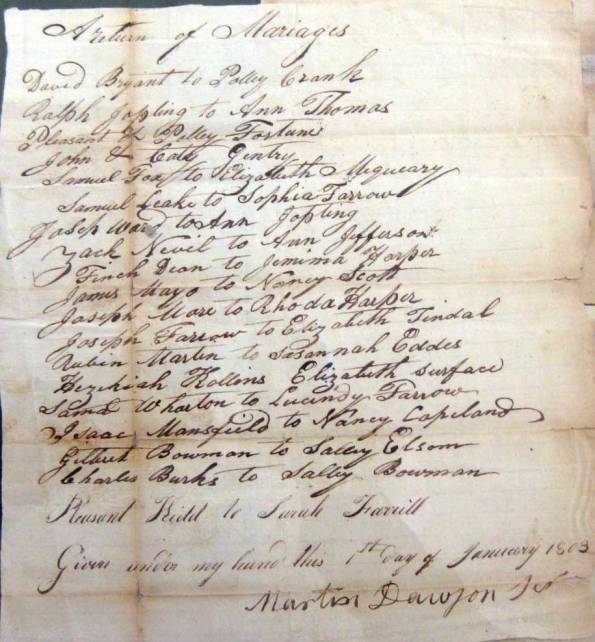 A return of Mariages
David Bryant to Polley Crank
Ralph Jopling to Ann Thomas
Pleasant & Polley Fortune
John & Gentry
Samuel Fox to Elizabeth Megueary
Samuel Leake to Sophia Farrow
Josep Ward to Ann Jopling
Zack Nevil to Ann Jefferson
Finch Dean to Jemima Harper
James Mayo to Nancy Scott
Joseph More to Rhoda Harper
Joseph Farrow to Elizabeth Tindal
Rubin Martin to Susannah Eddes
Hezekiah Kollins Elizabeth Surface
Saml Wharton to Lucindy Farrow
Isaac Mansfield to Nancy Copeland
Gilbert Bowman to Salley Elsom
Charles Burks to Salley Bowman
Pleasant Kidd to Sarah Farrill
Given under my hand this 1st day of January 1803
Martin Dawson